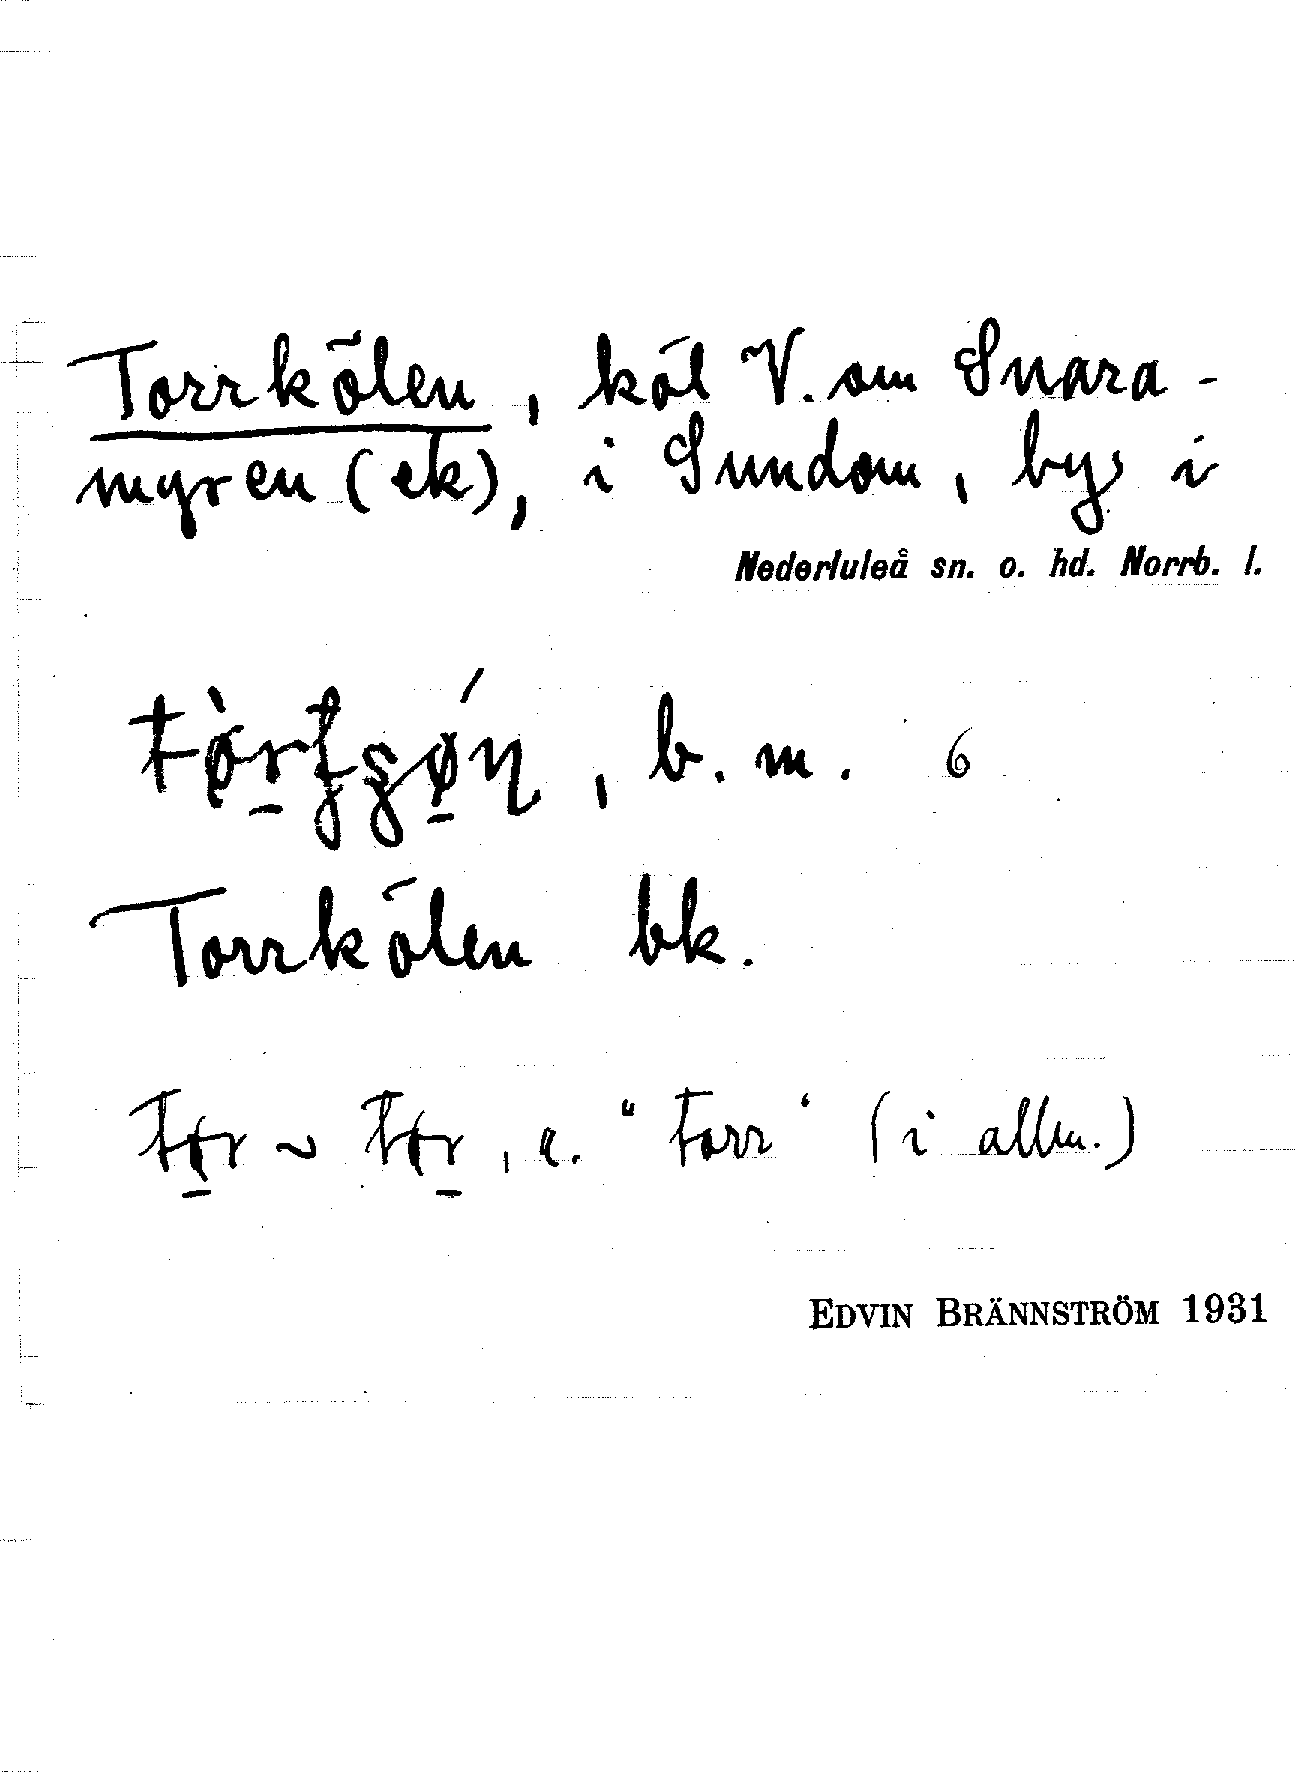 Torrkölen, köl V. om Snara-
myren (ek), i Sundom, by i
Nederluleå sn. o. hd. Norrb. l.
, b. m. 6
Torrkölen bk.
~ , a. "torr" (i allm.)
EDVIN BRÄNNSTRÖM 1931